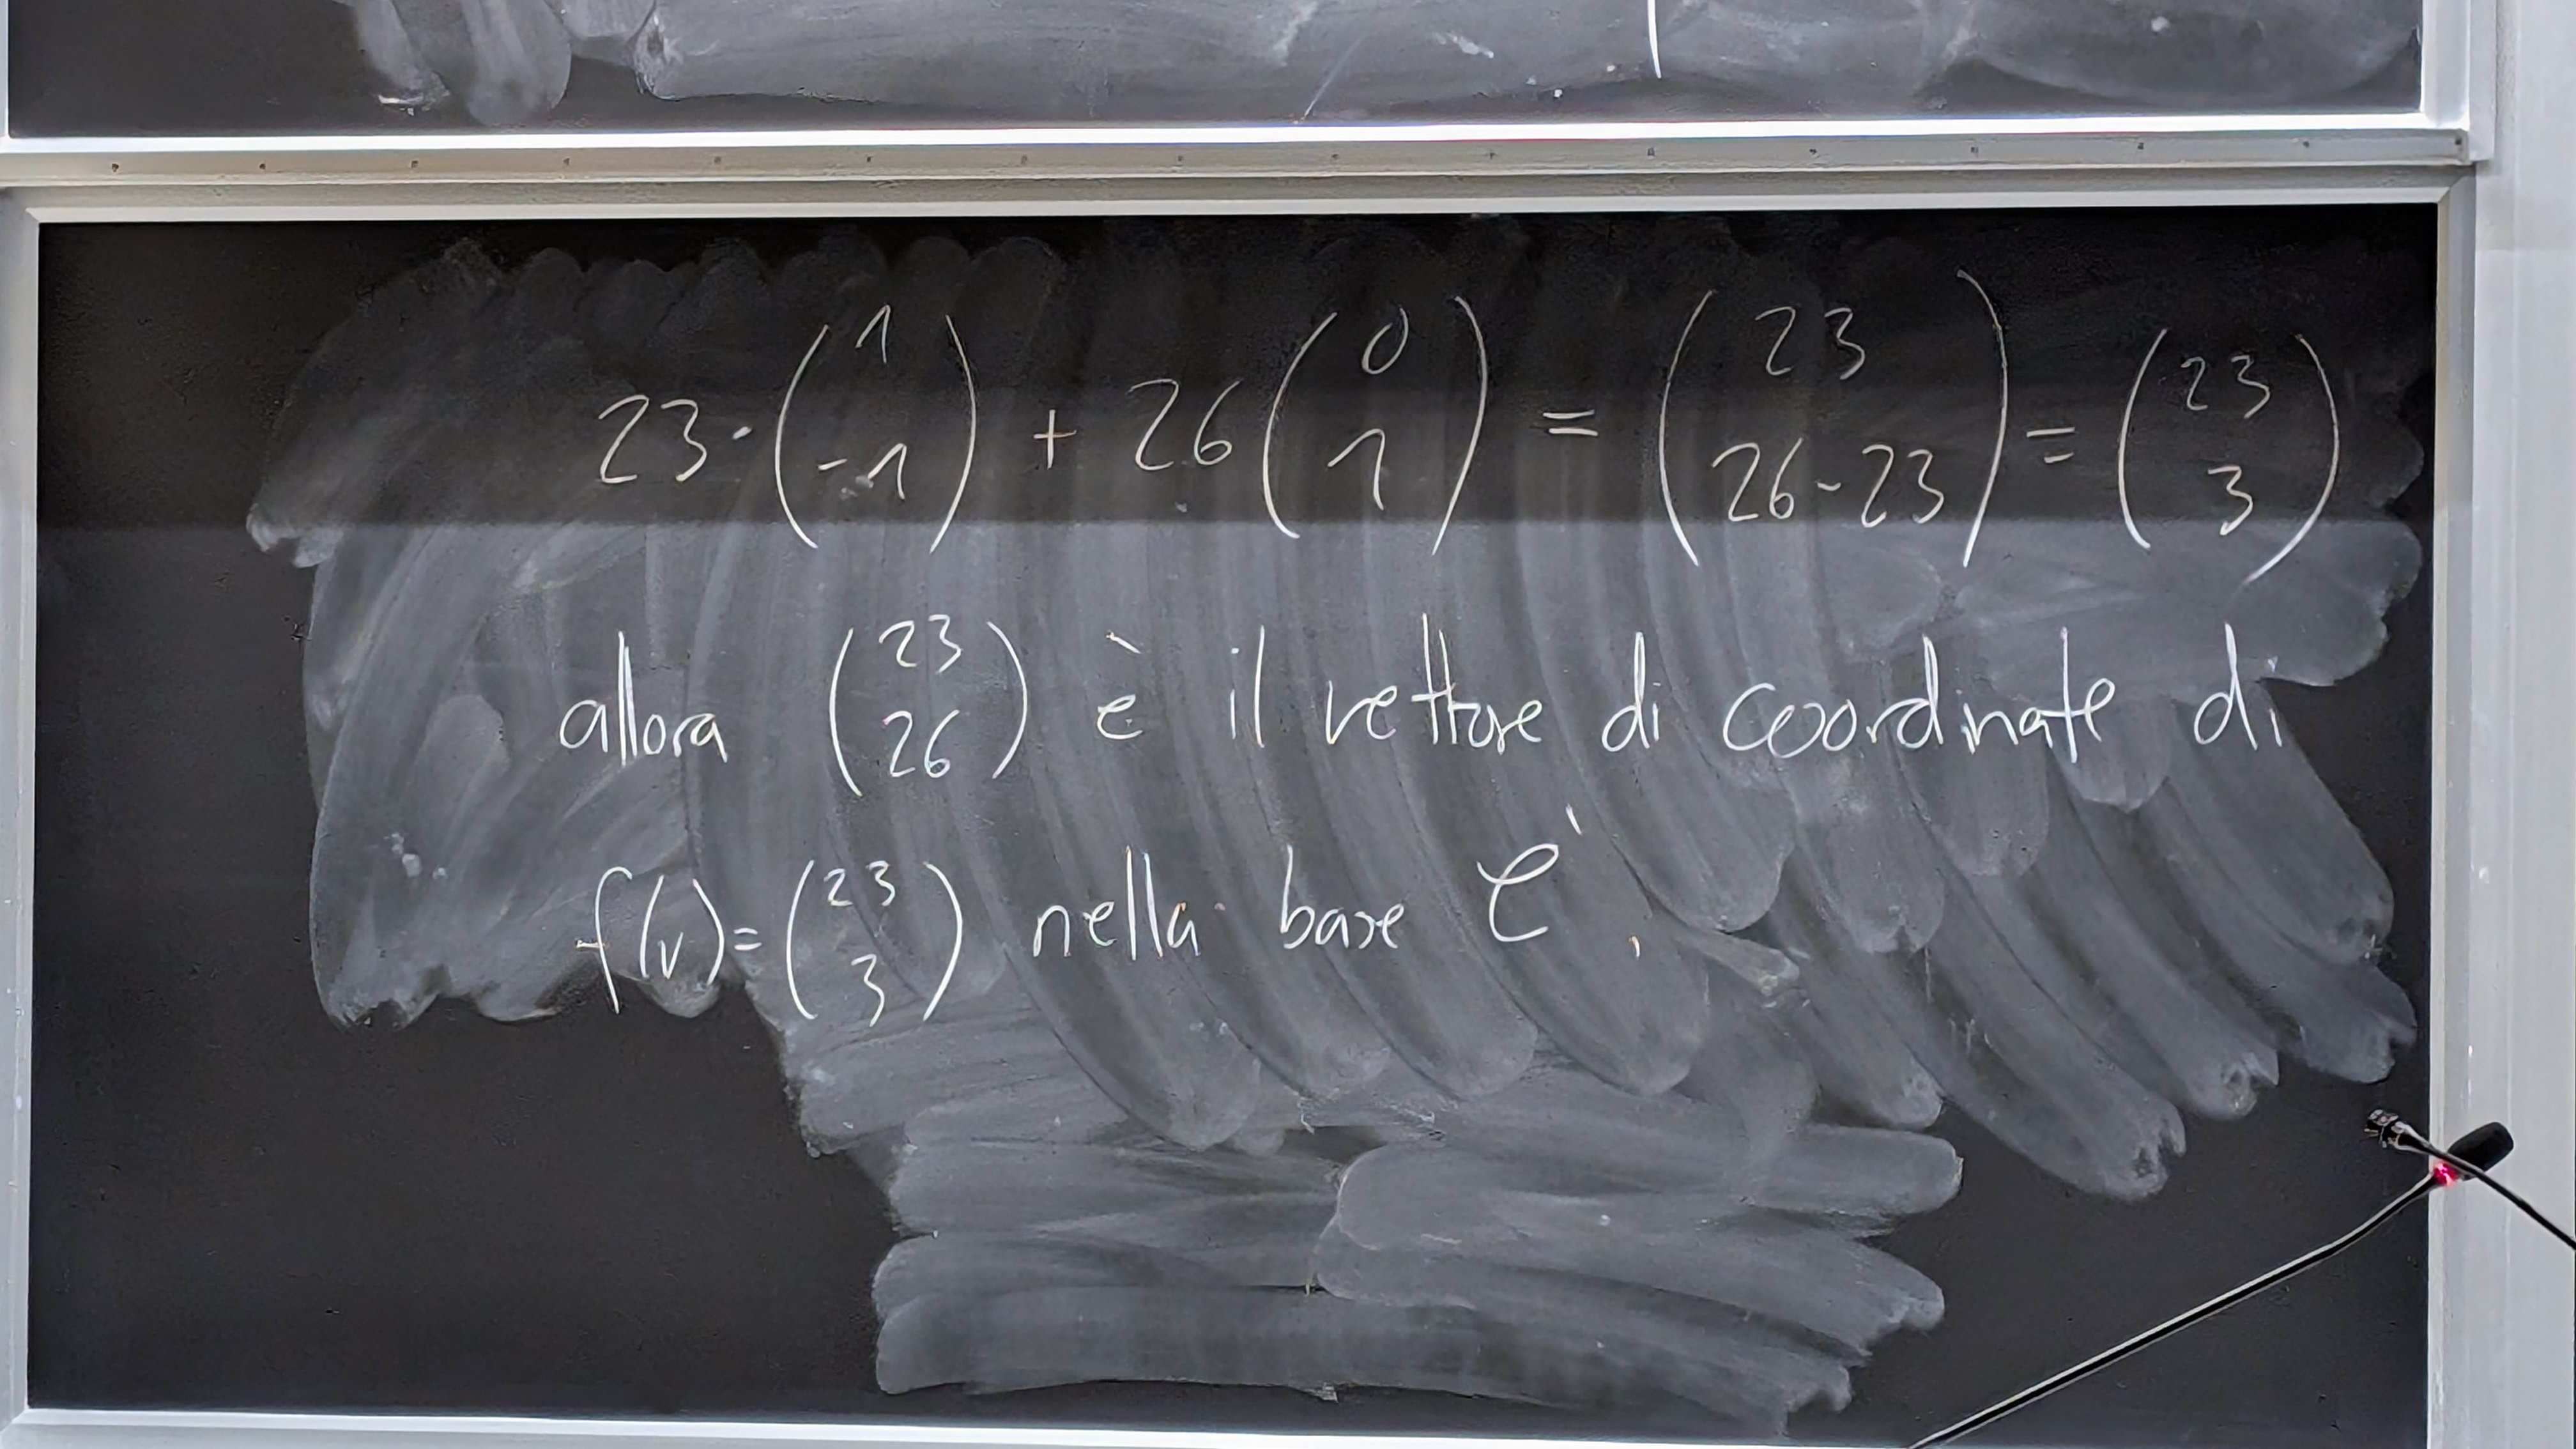 23 · (1 -1) + 26 (0 1) = (23 26-23) = (23 3)
allora (23 26) è il vettore di coordinate di
f(v) = (23 3) nella base C'.